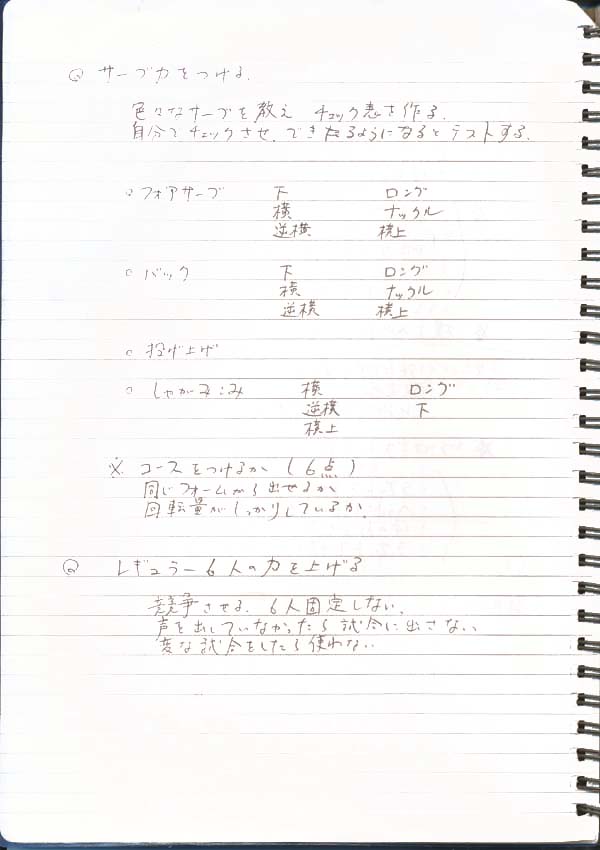 ◎ サーブ力をつける.
色々なサーブを教え チェック表を作る.
自分でチェックさせ、できたるようになるとテストする.
○ フォアサーブ 下 ロング
横 ナックル
逆横 横上
○ バック 下 ロング
横 ナックル
逆横 横上
○ 投げ上げ
○ しゃがみこみ 横 ロング
逆横 下
横上
※ コースをつけるか (6点)
同じフォームから出せるか
回転量がしっかりしているか.
◎ レギュラー6人の力を上げる
競争させる. 6人固定しない.
声を出していなかったら試合に出さない.
変な試合をしたら使わない.